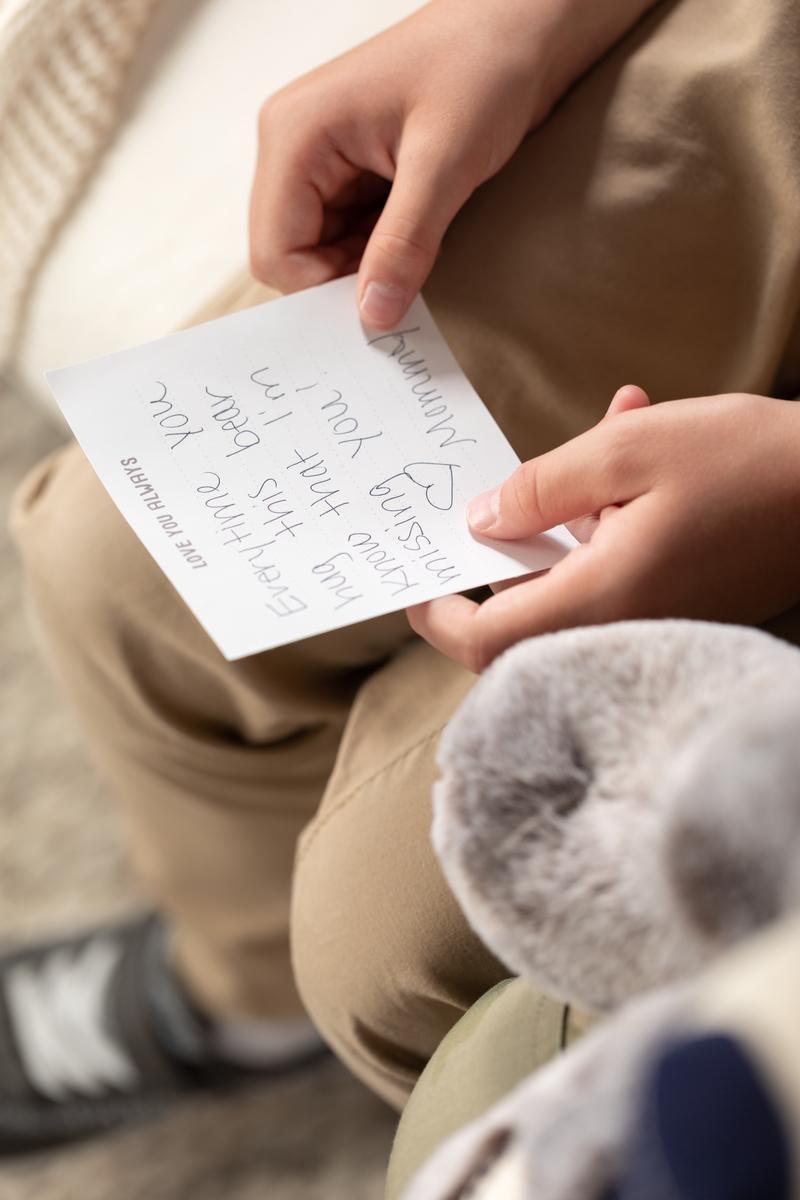 LOVE YOU ALWAYS
Everytime you
hug this bear
know that I'm
missing you!
♡ Mommy